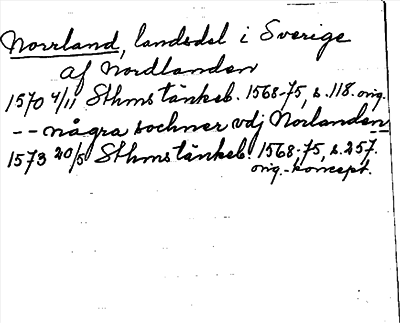 Norrland, landsdel i Sverige
af Nordlanden
1570 4/11 Sthms tänkeb. 1568-75, s. 118. orig.
-- några sochner vdj Norlanden --
1573 20/5 Sthms tänkeb. 1568-75, s. 257.
orig.-koncept.